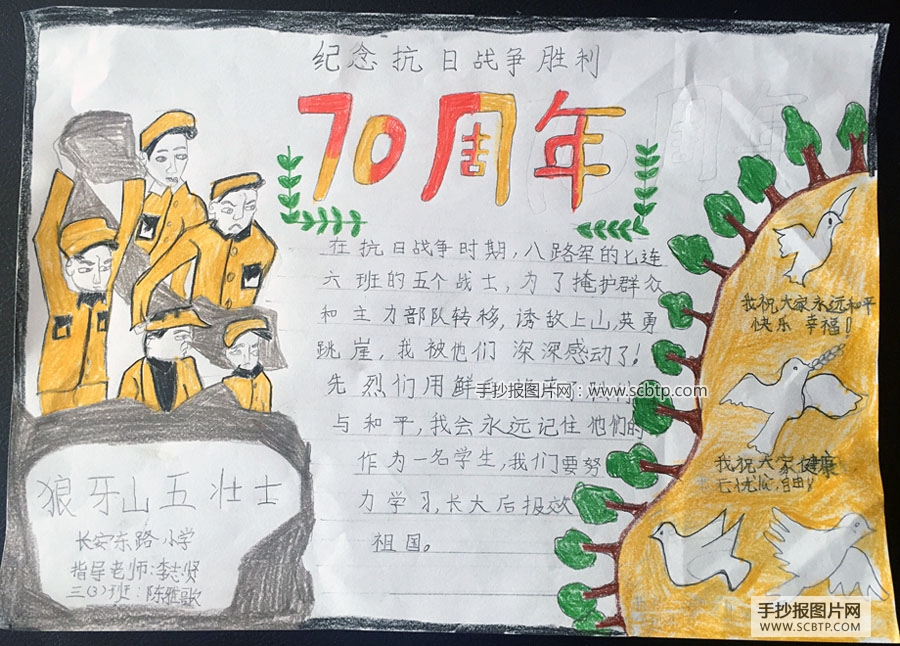 纪念抗日战争胜利
70周年
在抗日战争时期,八路军的七连
六班的五个战士,为了掩护群众
和主力部队转移,诱敌上山,英勇
跳崖,我被他们深深感动了!
先烈们用鲜
手抄报图片网:www.scbtp.com
与和平,我会永远记住他们的
作为一名学生,我们要努
力学习,长大后报效
祖国。
狼牙山五壮士
长安东路小学
指导老师:李志贤
三(3)班:陈雅歌
我祝大家永远和平
快乐 幸福!
我祝大家健康
无忧心,自由!
手抄报图片网
WWW.SCBTP.COM